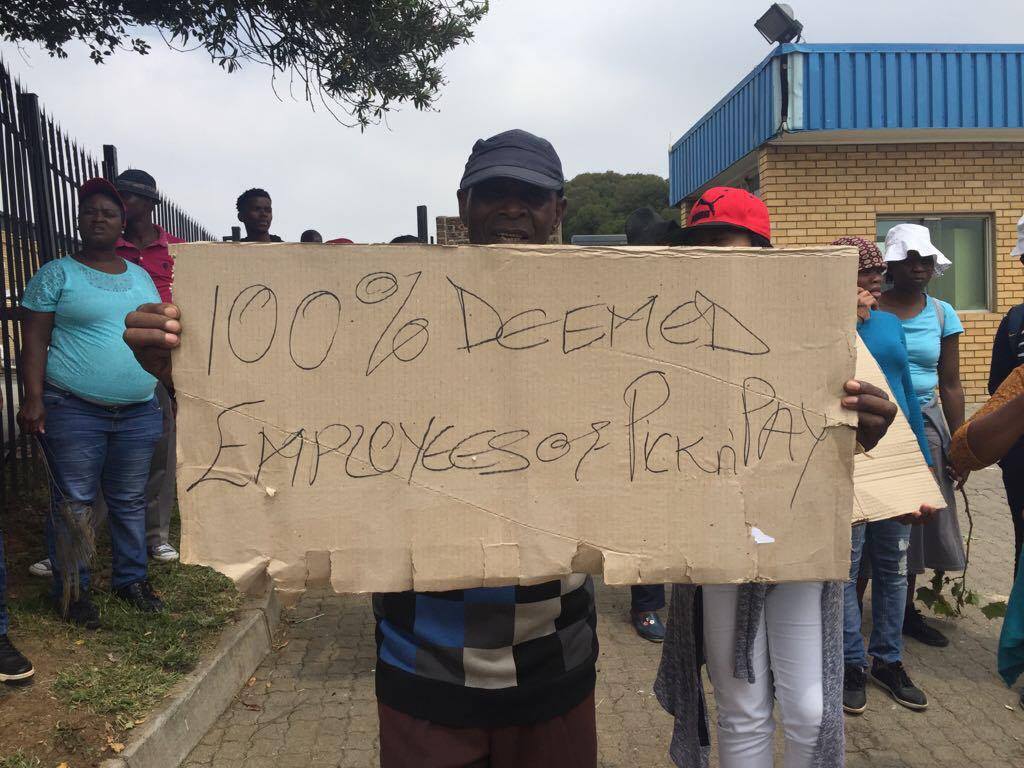 100% DEEMED
EMPLOYEES OF PICK n' PAY